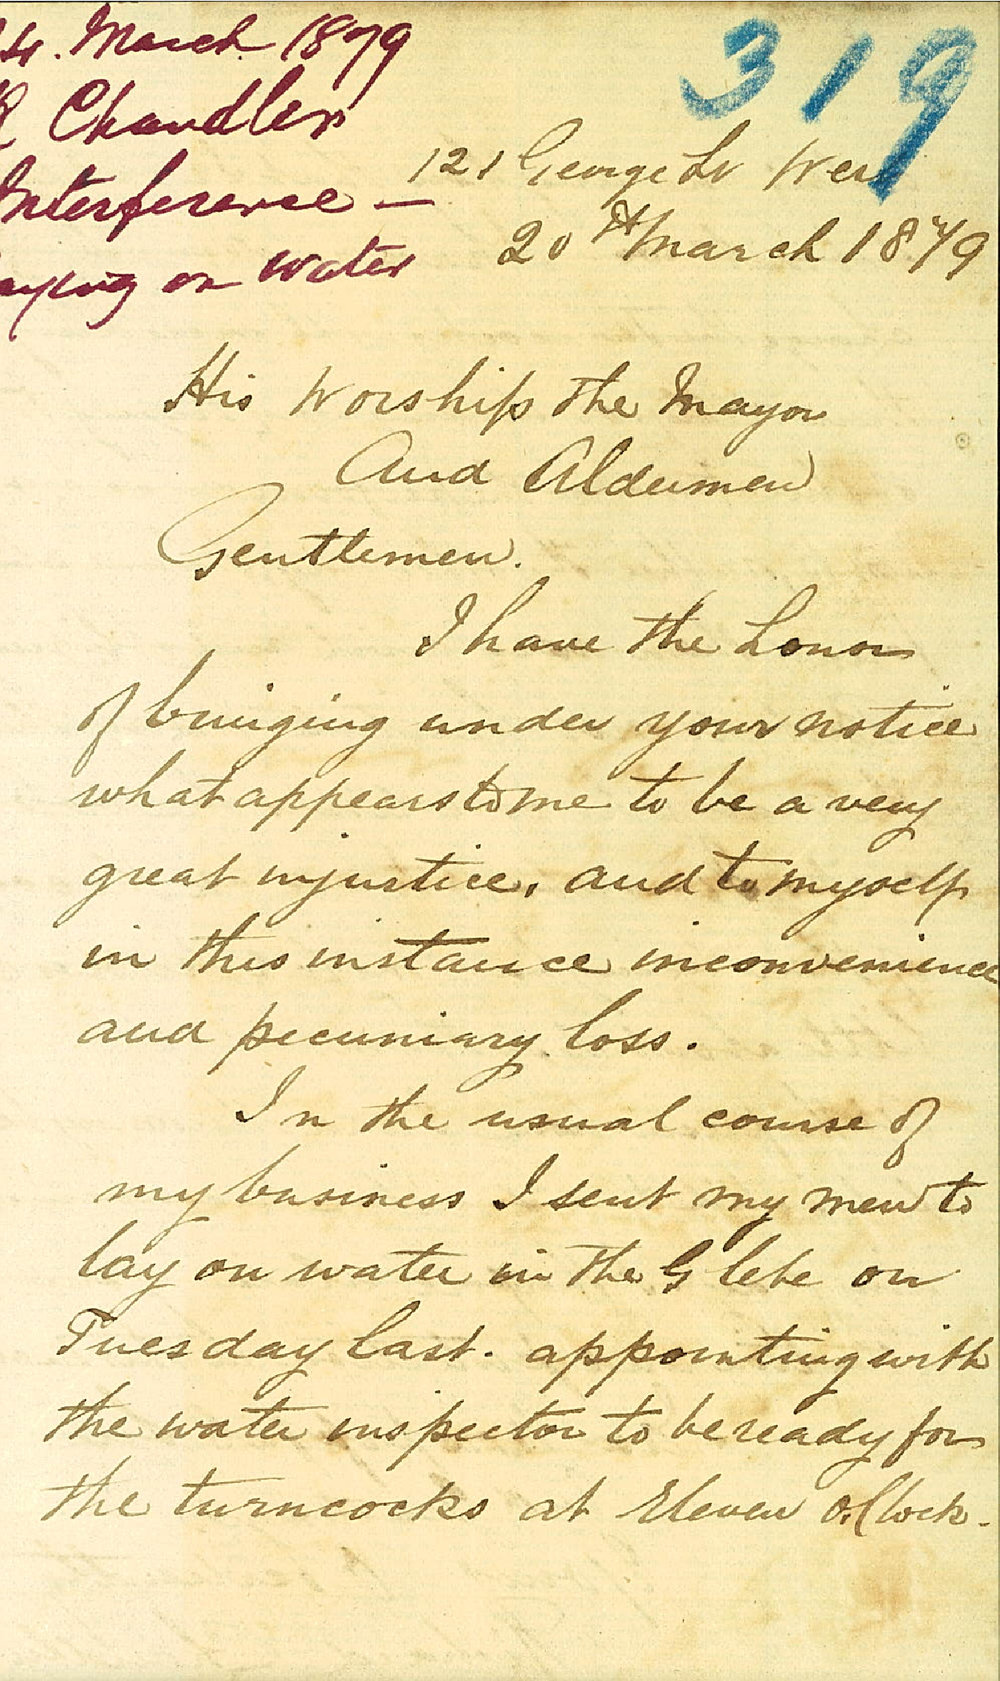 4. March 1879
R Chandler
Interference —
aying on water
319
121 George St West
20th March 1879
His Worship the Mayor
And Aldermen
Gentlemen.
I have the honor
of bringing under your notice
what appears to me to be a very
great injustice, and to myself
in this instance inconvenience
and pecuniary loss.
In the usual course of
my business I sent my men to
lay on water in the Glebe on
Tuesday last. appointing with
the water inspector to be ready for
the turncocks at Eleven o.Clock.